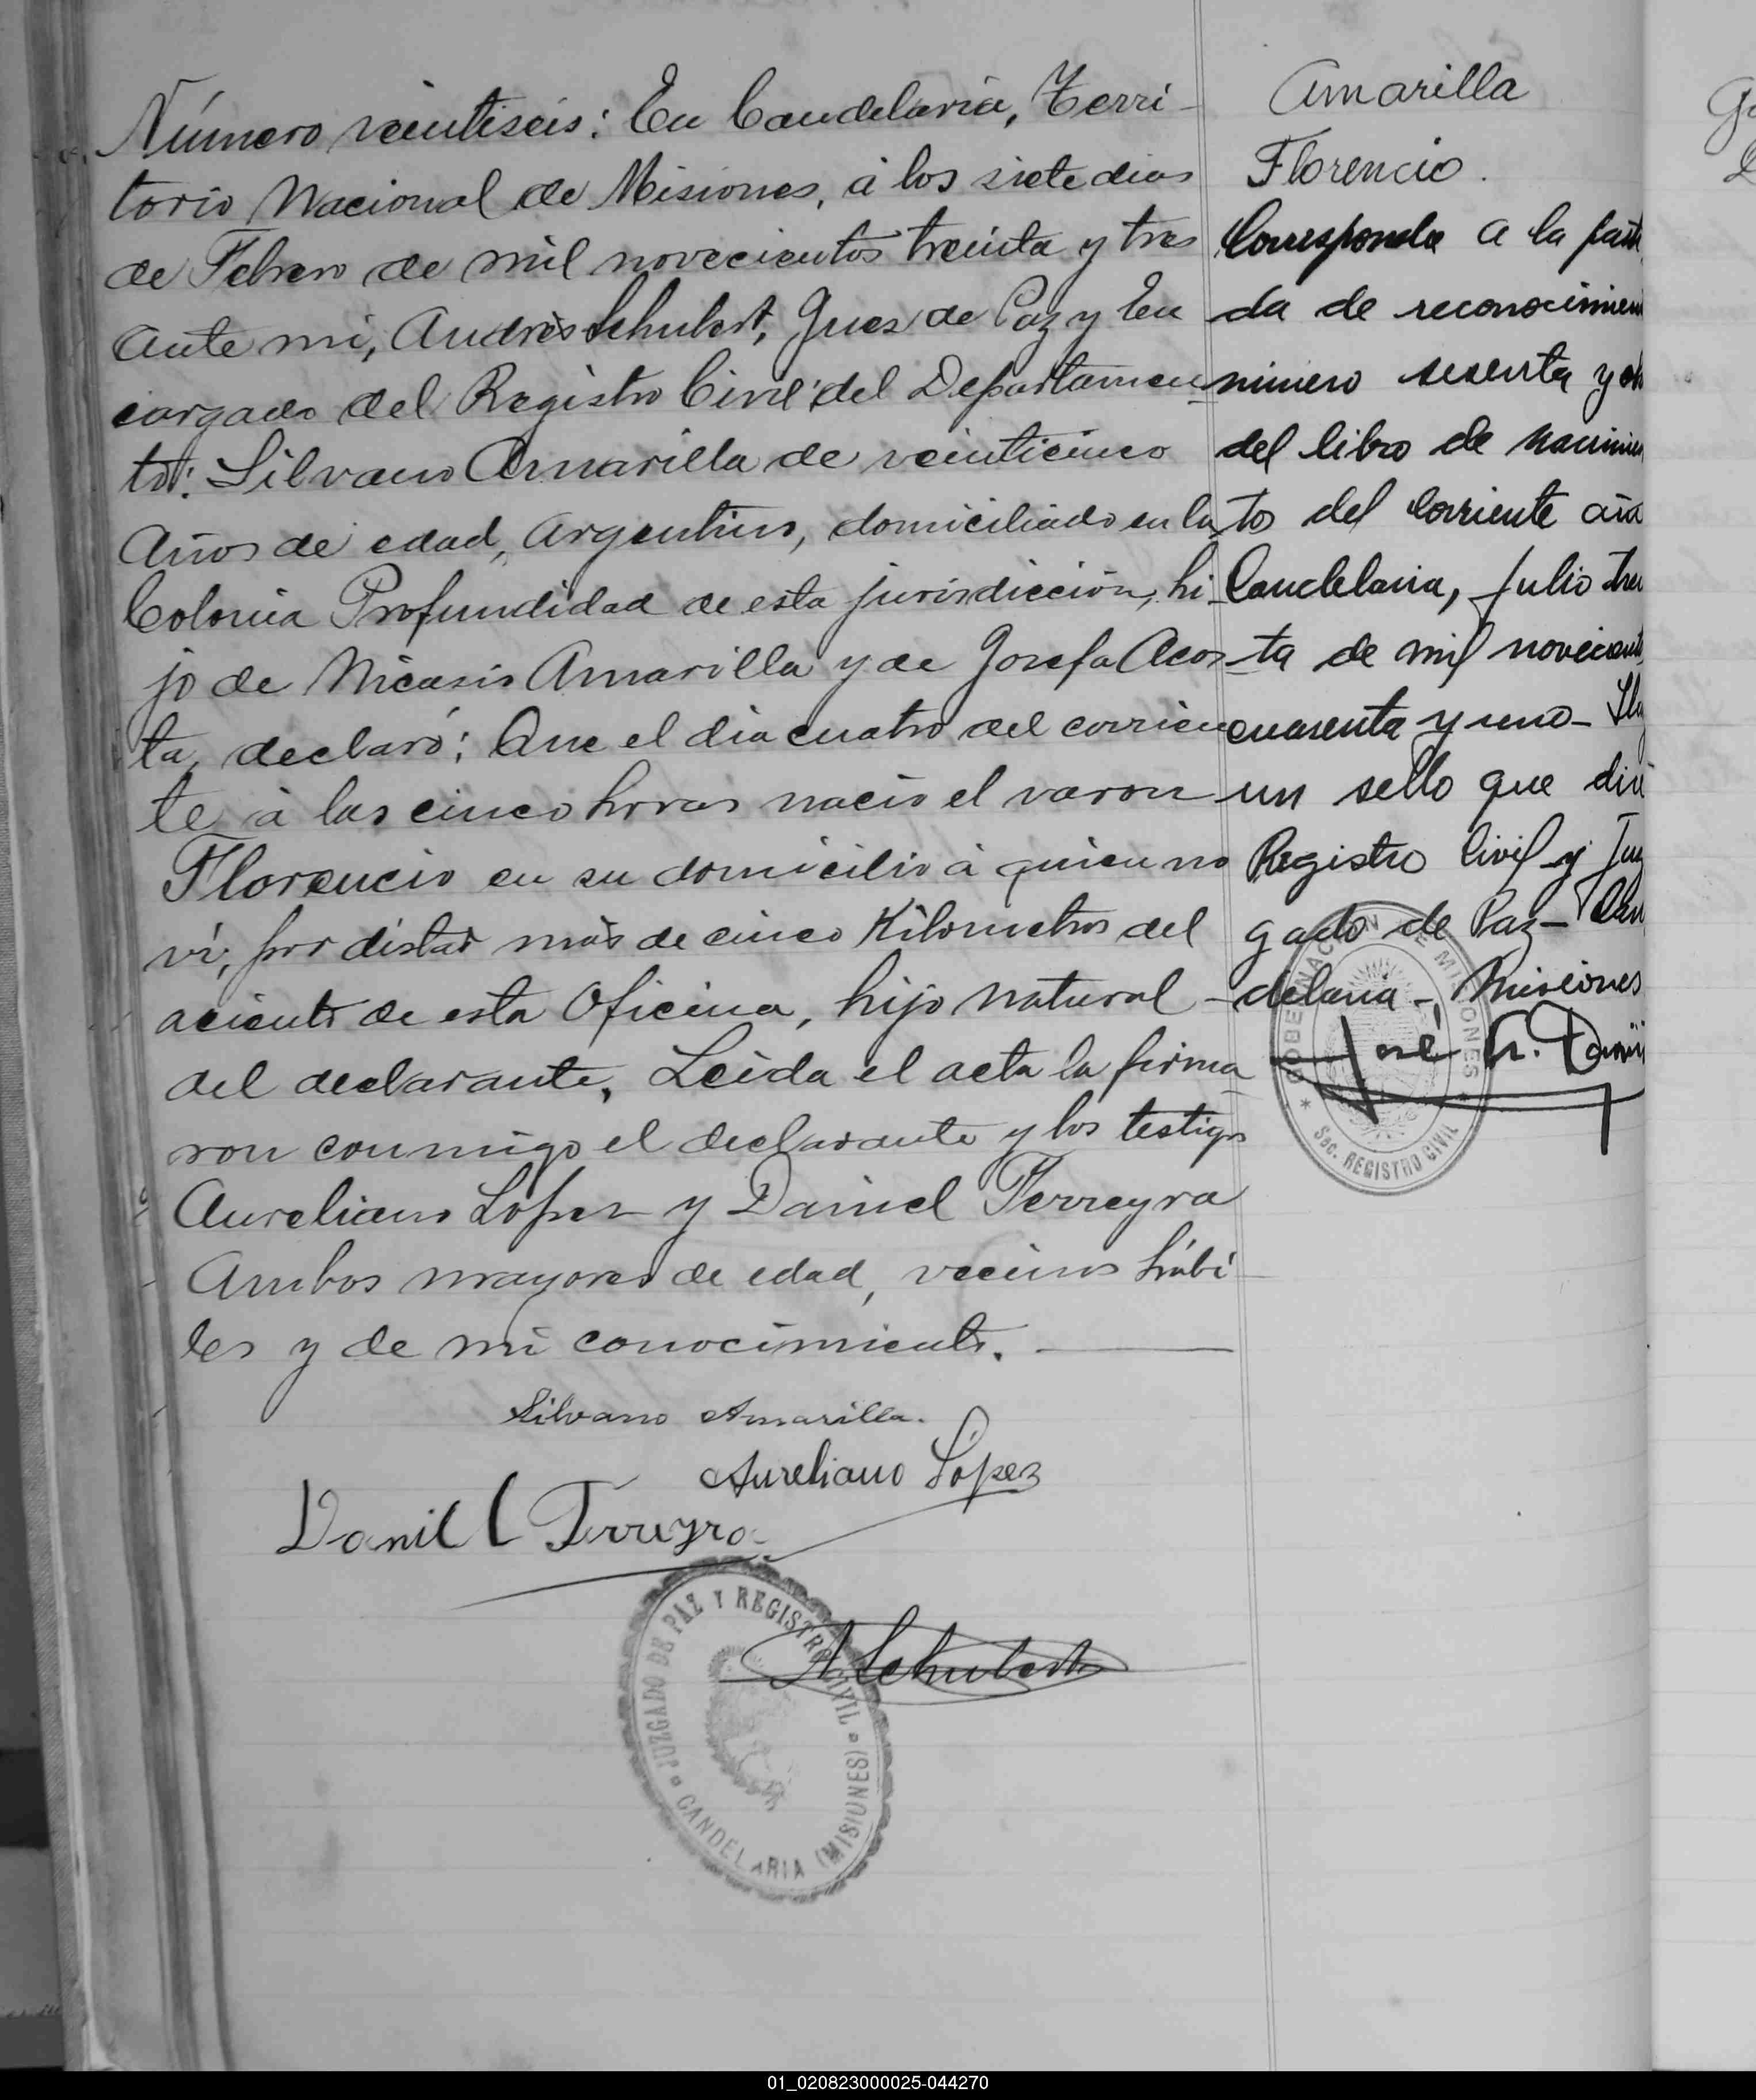 Número veintiseis: En Candelaria, Terri-
torio Nacional de Misiones, á los siete dias
de Febrero de mil novecientos treinta y tres
Ante mi, Andrés Schubert, Jues de Paz y En
cargado del Registro Civil del Departamen-
to: Silvano Amarilla de veinticinco
Años de edad, Argentino, domiciliado en la
Colonia Profundidad de esta jurisdicción, hi-
jo de Nicasio Amarilla y de Josefa Acos-
ta, declaró: Que el dia cuatro del corrien
te á las cinco horas nació el varon
Florencio en su domicilio á quien no
ví, por distar más de cinco Kilometros del
aciento de esta Oficina, hijo natural -
del declarante. Leida el acta la firma
ron conmigo el declarante y los testigos
Aureliano Lopez y Daniel Ferreyra
Ambos mayores de edad, vecinos hábi-
les y de mi conocimiento.
Silvano Amarilla.
Aureliano López
Daniel Ferreyra
A Schubert
JUZGADO DE PAZ Y REGISTRO CIVIL
CANDELARIA (MISIONES)
Amarilla
Florencio.
Corresponde a la parti
da de reconocimien
número sesenta y
del libro de nacimien
to del corriente año
Candelaria, Julio trein
ta de mil novecientos
cuarenta y uno-
un sello que dice
Registro Civil y Juz
gado de Paz- Can
delaria - Misiones
José
GOBERNACION DE MISIONES
Sec. REGISTRO CIVIL
01_020823000025-044270